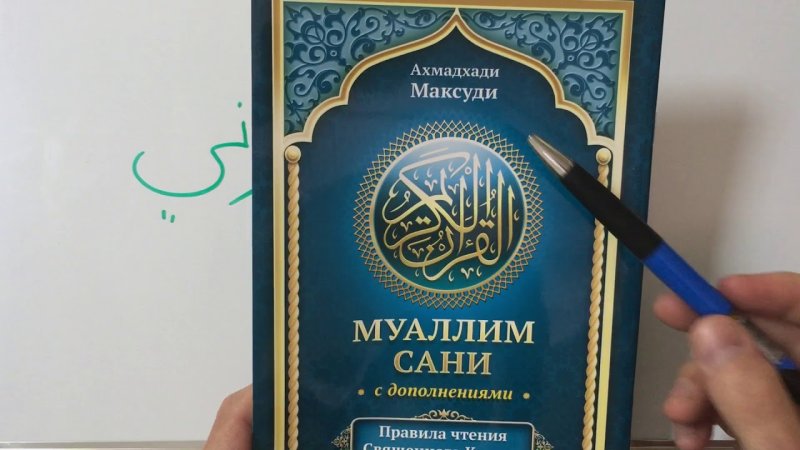 Ахмадхади
Максуди
القرآن الكريم
МУАЛЛИМ
САНИ
с дополнениями
Правила чтения